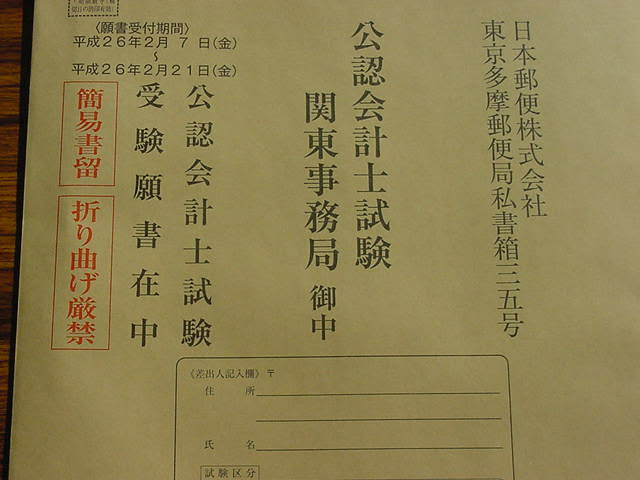 日本郵便株式会社
東京多摩郵便局私書箱三五号
公認会計士試験
関東事務局 御中
公認会計士試験
受験願書在中
〈願書受付期間〉
平成26年2月 7 日(金)
~
平成26年2月21日(金)
簡易書留
折り曲げ厳禁
《差出人記入欄》 〒
住 所
氏 名
試験区分